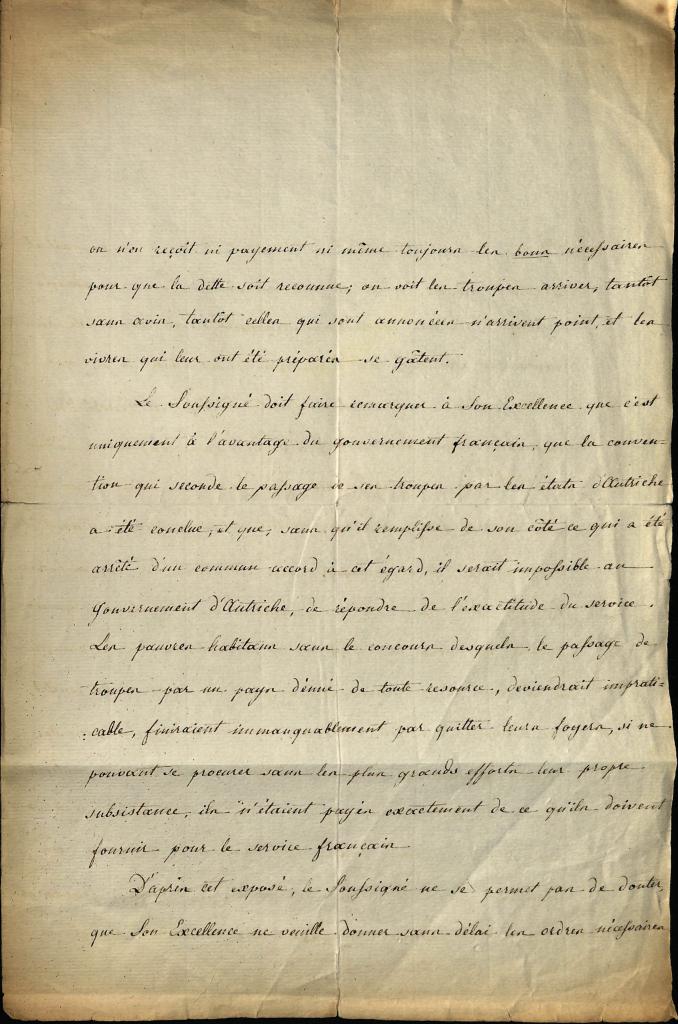 on n'en reçoit ni payement ni même toujours les bons nécessaires
pour que la dette soit reconnue; on voit les troupes arriver, tantôt
sans avis, tantôt celles qui sont annoncées n'arrivent point, et les
vivres qui leur ont été préparés se gâtent.
Le Soussigné doit faire remarquer à Son Excellence que c'est
uniquement à l'avantage du gouvernement français, que la conven=
tion qui seconde le passage de ses troupes par les états d'Autriche
a été conclue, et que, sans qu'il remplisse de son côté ce qui a été
arrêté d'un commun accord à cet égard, il serait impossible au
Gouvernement d'Autriche, de répondre de l'exactitude du service.
Les pauvres habitans sans le concours desquels le passage de
troupes par un pays dénué de toute resource, deviendrait imprati=
=cable, finiraient immanquablement par quitter leurs foyers, si ne
pouvant se procurer sans les plus grands efforts leur propre
subsistance, ils n'étaient payés exactement de ce qu'ils doivent
fournir pour le service français
D'après cet exposé, le Soussigné ne se permet pas de douter
que Son Excellence ne veuille donner sans délai les ordres nécessaires